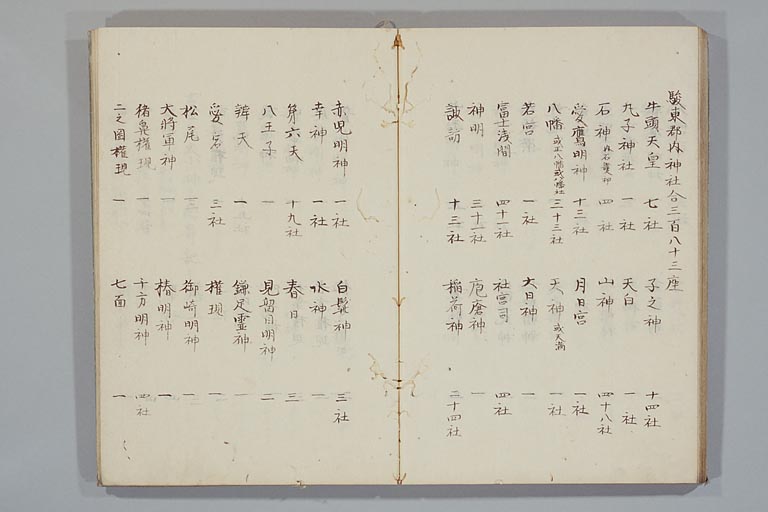 駿東郡内神社合三百八十三座
牛頭天皇 七社 子之神 十四社
丸子神社 一社 天白 一社
石神 四社 山神 四十八社
愛鷹明神 十三社 月日宮 一社
八幡 或正八幡或八幡社 三十三社 天神 或天満 一社
若宮 一社 大日神 一
富士浅間 四十社 社宮司 四社
神明 三十二社 庖瘡神 一
諏訪 十三社 稲荷神 二十四社
赤児明神 一社 白髭神 三社
幸神 一社 水神 一
第六天 十九社 春日 三
八王子 一 見留目明神 二
辨天 一 鎌足霊神 一
愛宕 三社 権現 一
松尾 一 御崎明神 一
大将軍神 一 椿明神 一
猪鼻権現 一 千方明神 四社
二之岡権現 一 七面 一